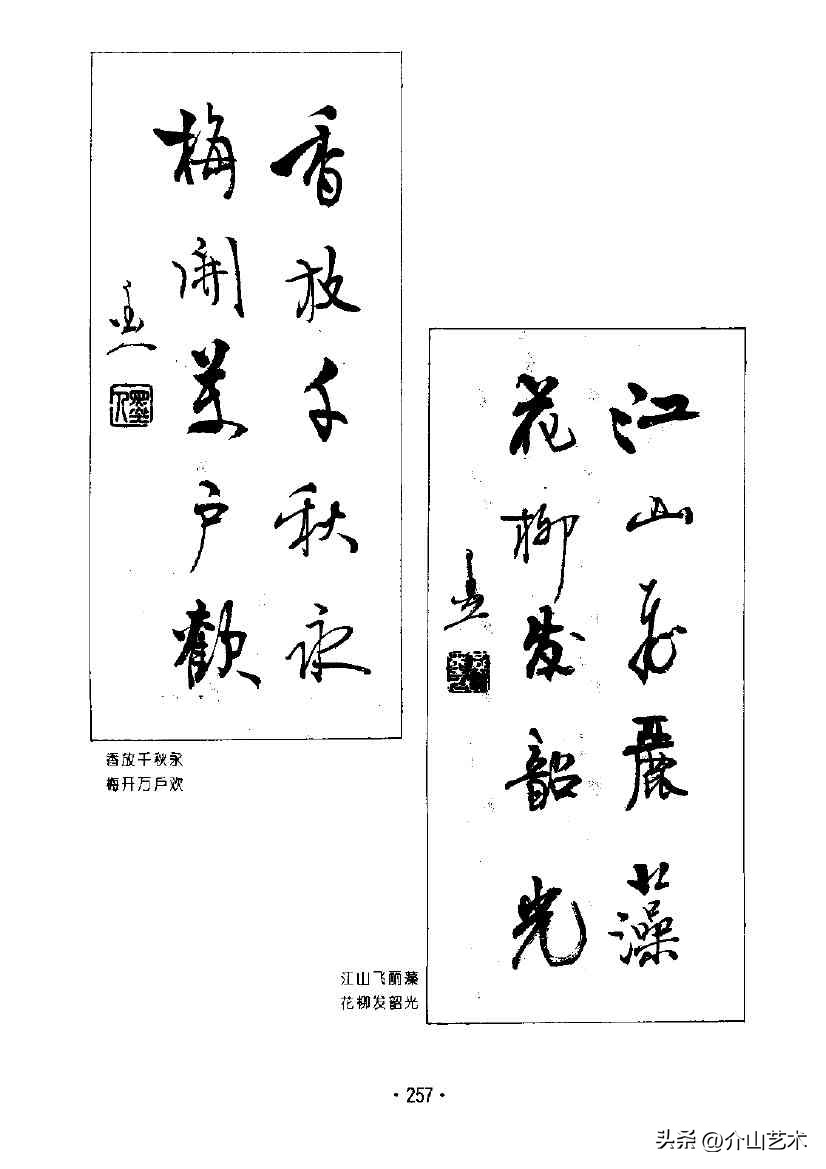 香放千秋永
梅開万户歡
香放千秋永
梅开万户欢
江山飛麗藻
花柳发韶光
江山飞丽藻
花柳发韶光
·257·
头条 @介山艺术